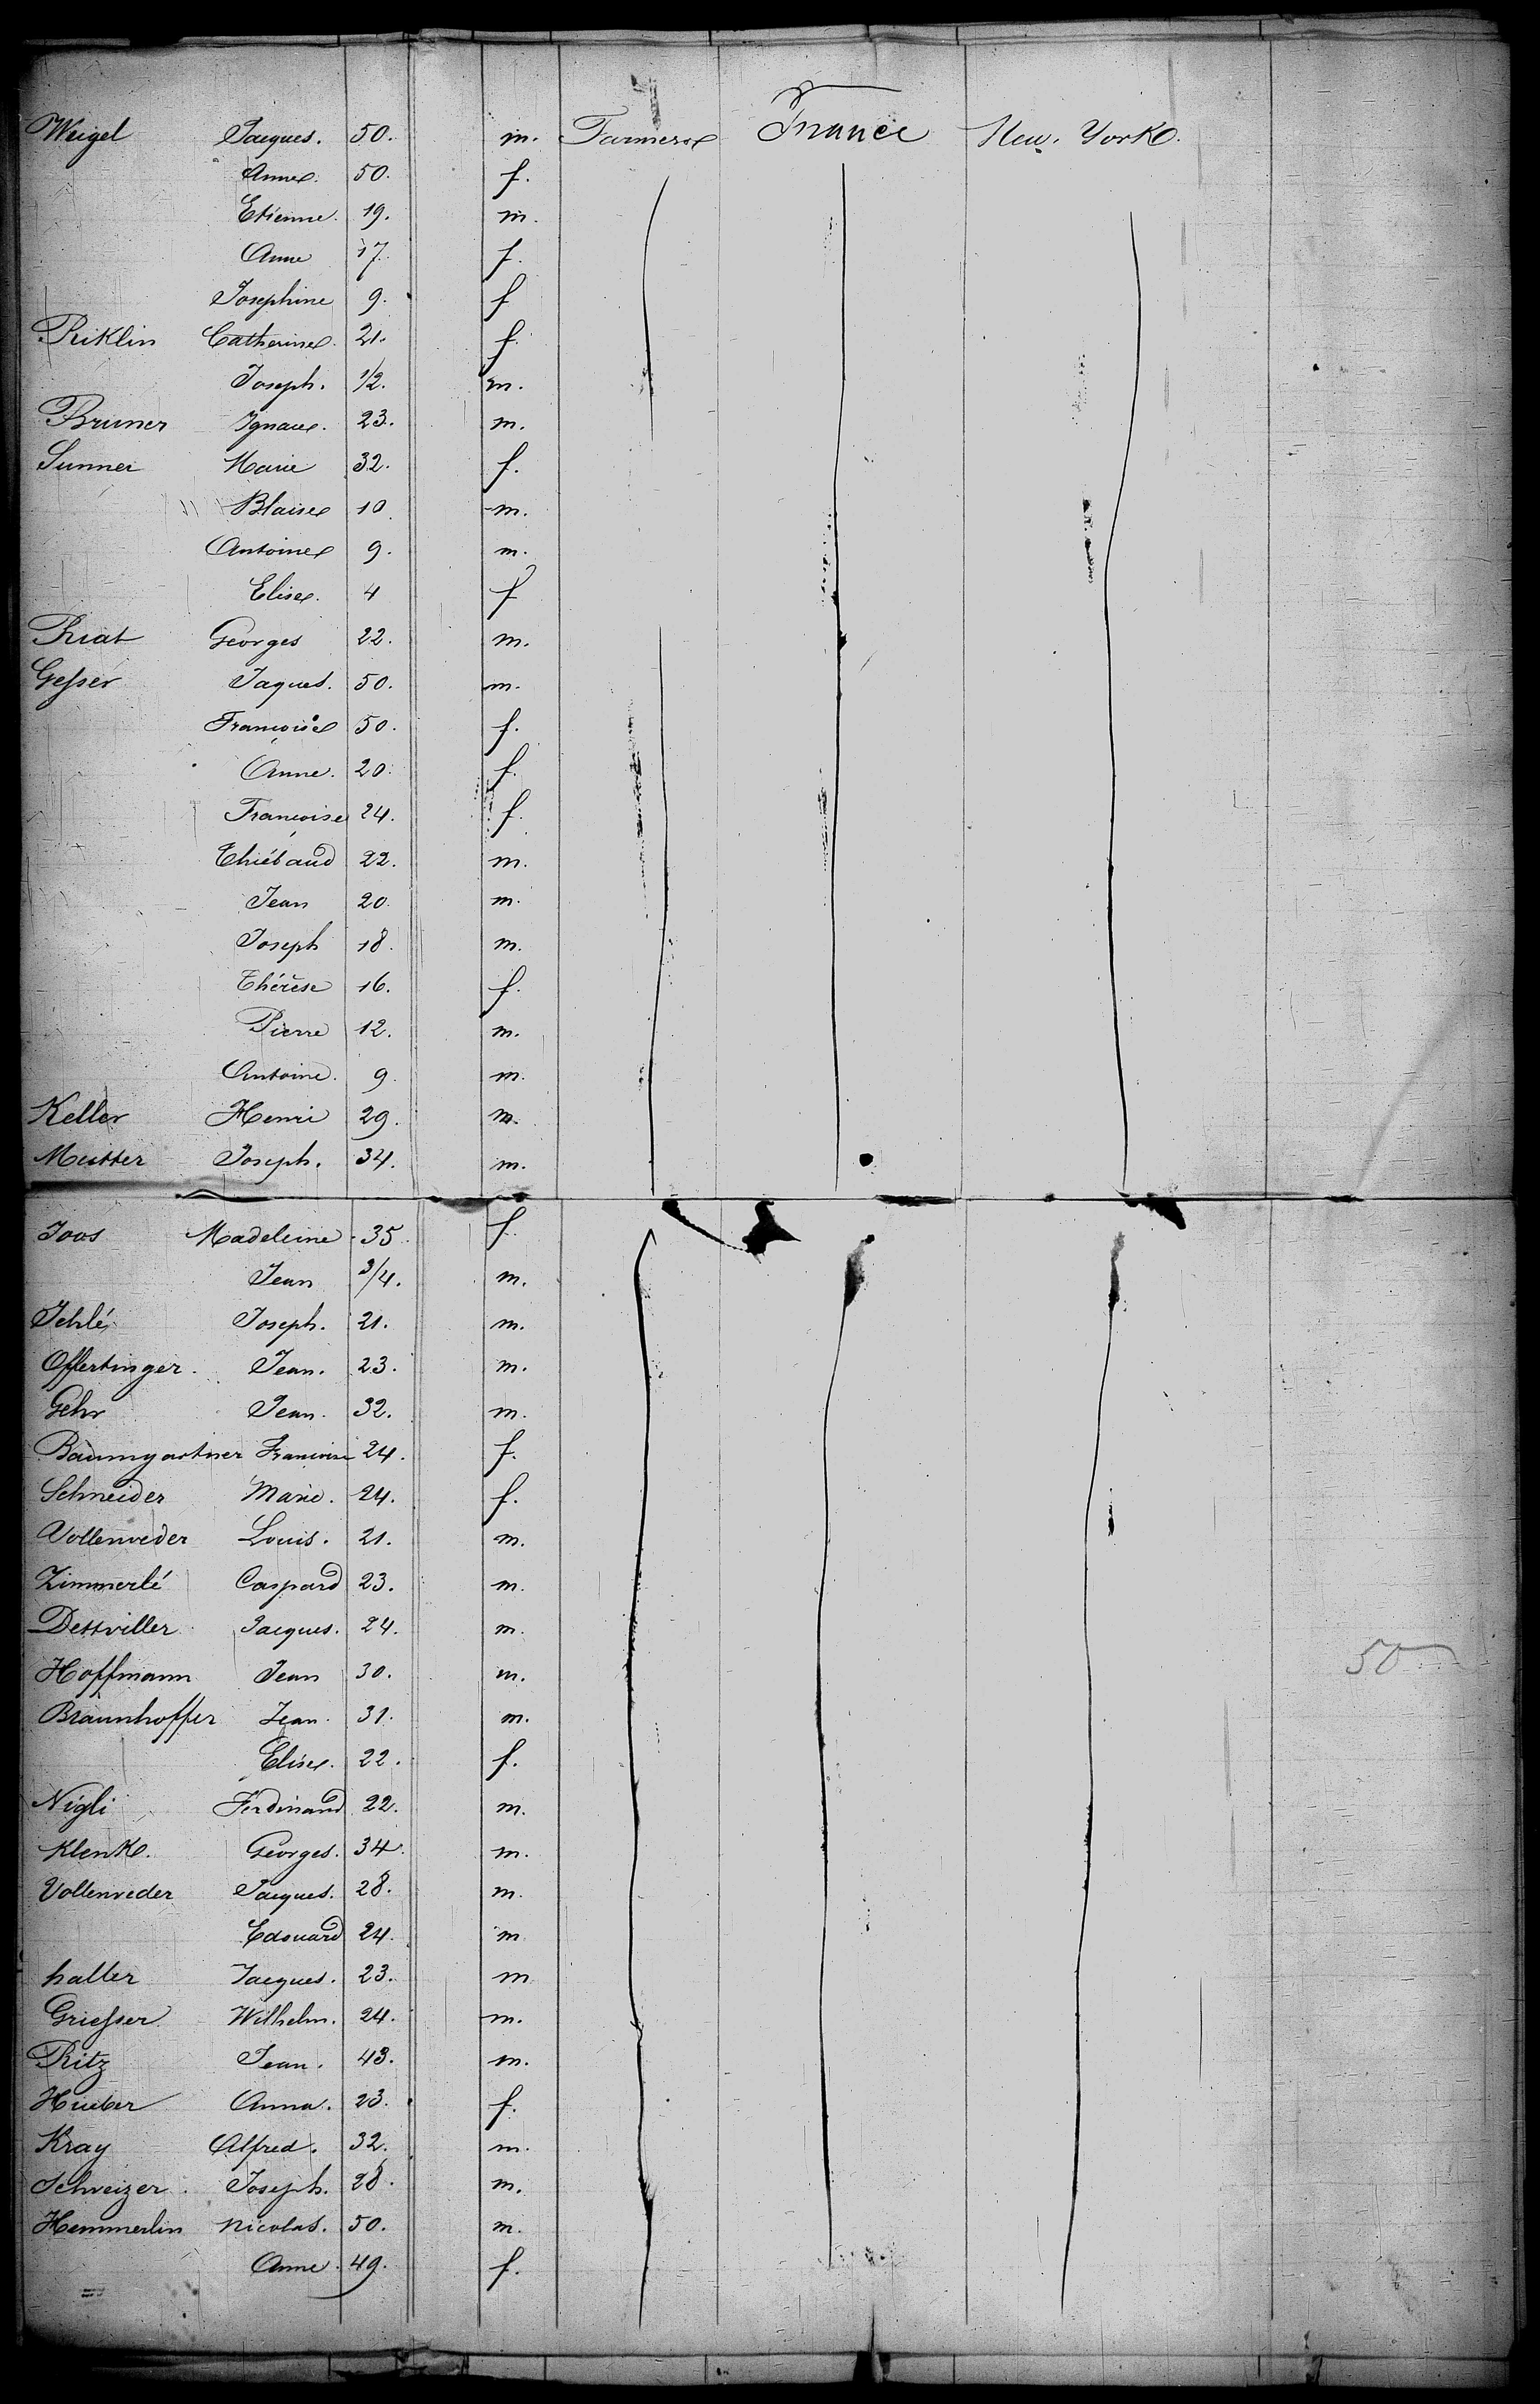 Weigel Jacques. 50. m. Farmers France New. York.
Anne. 50. f.
Etienne. 19. m.
Anne 17. f.
Josephine 9. f
Riklin Catherine. 21. f.
Joseph. 1/2. m.
Bruner Ignace. 23. m.
Sunner Marie 32. f.
Blaise 10 m.
Antoine 9. m.
Elise. 4 f
Riat Georges 22. m.
Gesser Jaques. 50. m.
Francoise 50. f.
Anne. 20. f.
Françoise 24. f.
Thiébaud 22. m.
Jean 20. m.
Joseph 18. m.
Thérèse 16. f.
Pierre 12. m.
Antoine. 9. m.
Keller Henri 29. m.
Mutter Joseph. 34. m.
Joos Madeleine 35. f.
Jean 3/4. m.
Jehlé Joseph. 21. m.
Offertinger. Jean. 23. m.
Gehr Jean. 32. m.
Baumgartner Francoise 24. f.
Schneider Marie. 24. f.
Vollenveder Louis. 21. m.
Zimmerlé Caspard 23. m.
Dettviller Jacques. 24. m.
Hoffmann Jean 30. m. 50
Braunhoffer Jean. 31. m.
Elise. 22. f.
Nigli Ferdinand 22. m.
Klenk. Georges. 34. m.
Vollenveder Jacques. 28. m.
Edouard 24. m
haller Jacques. 23. m
Griesser Wilhelm. 24. m.
Ritz Jean. 43. m.
Hueber Anna. 23. f.
Kray Alfred. 32. m.
Schveizer. Joseph. 28. m.
Hemmerlin Nicolas. 50. m.
Anne. 49. f.